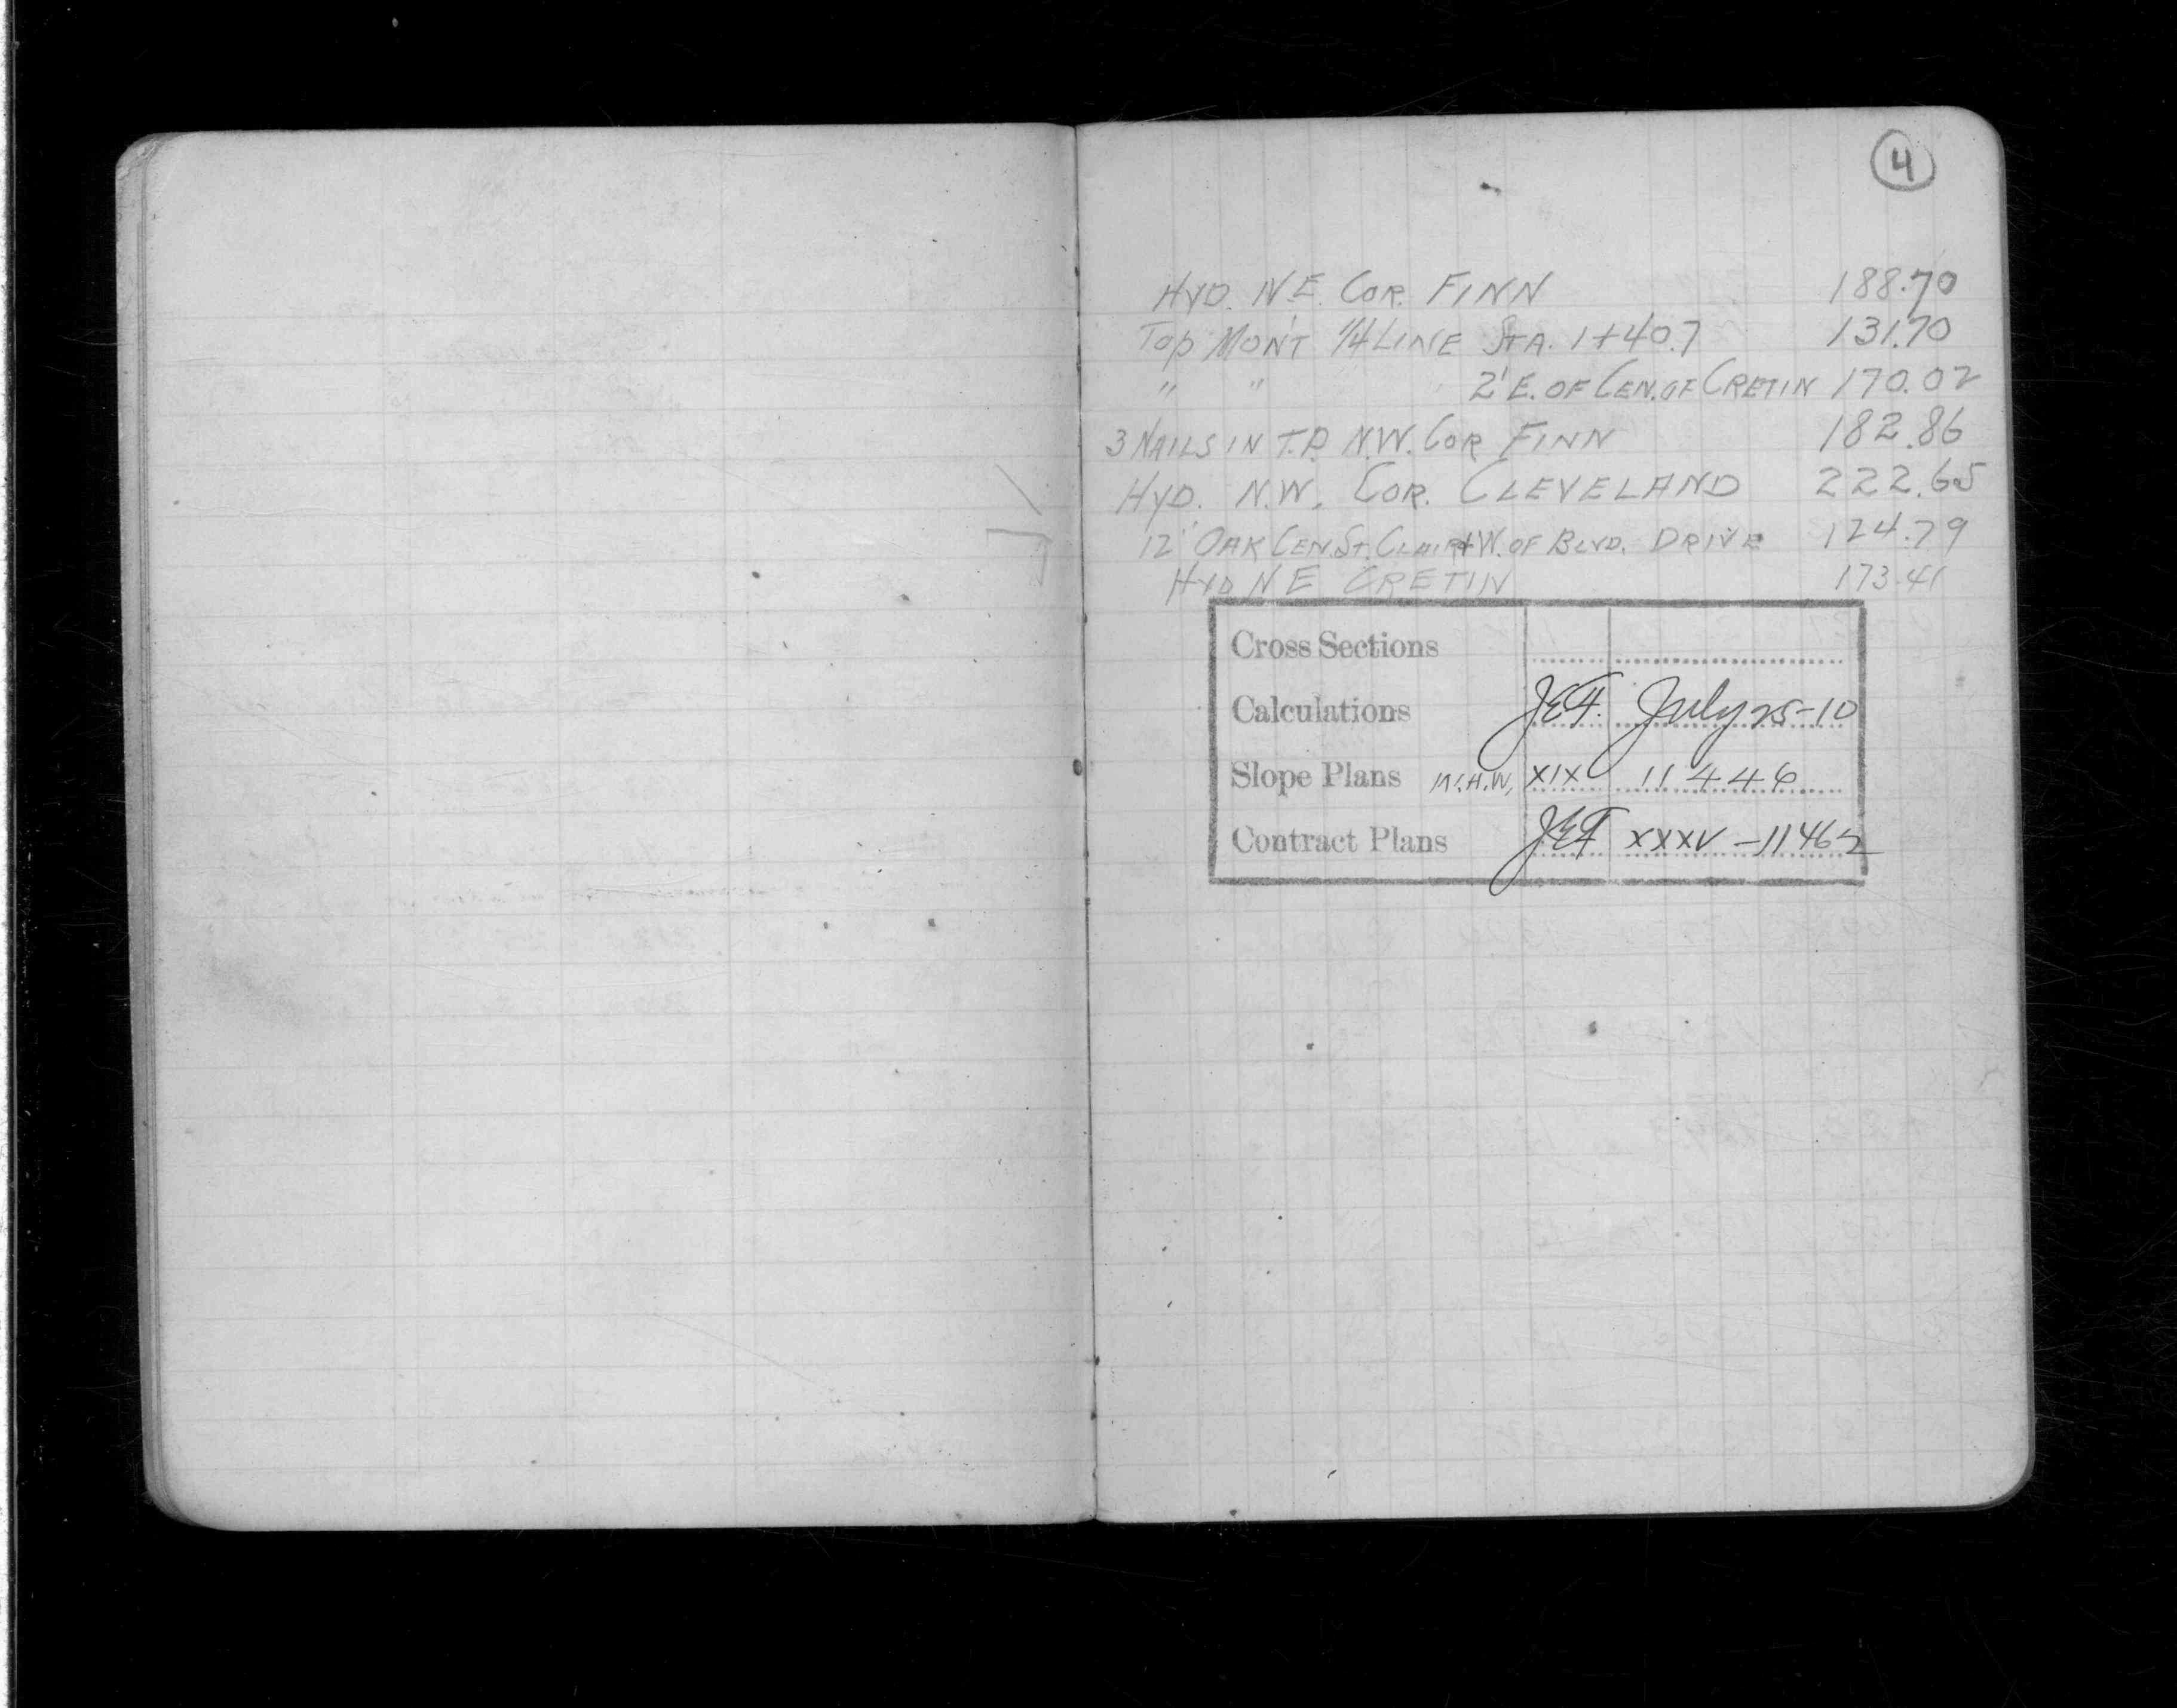 4
HYD. N.E. COR. FINN 188.70
TOP MON'T 1/4 LINE STA. 1+40.7 131.70
" " 2' E. OF CEN. OF CRETIN 170.02
3 NAILS IN T.P. N.W. COR FINN 182.86
HYD. N.W. COR. CLEVELAND 222.65
12" OAK CEN. ST. CLAIR + W. OF BLVD. DRIVE 124.79
HYD N E CRETIN 173.41
Cross Sections
Calculations JEF. July 25-10
Slope Plans W.H.W, XIX 11446
Contract Plans JEF XXXV-11462